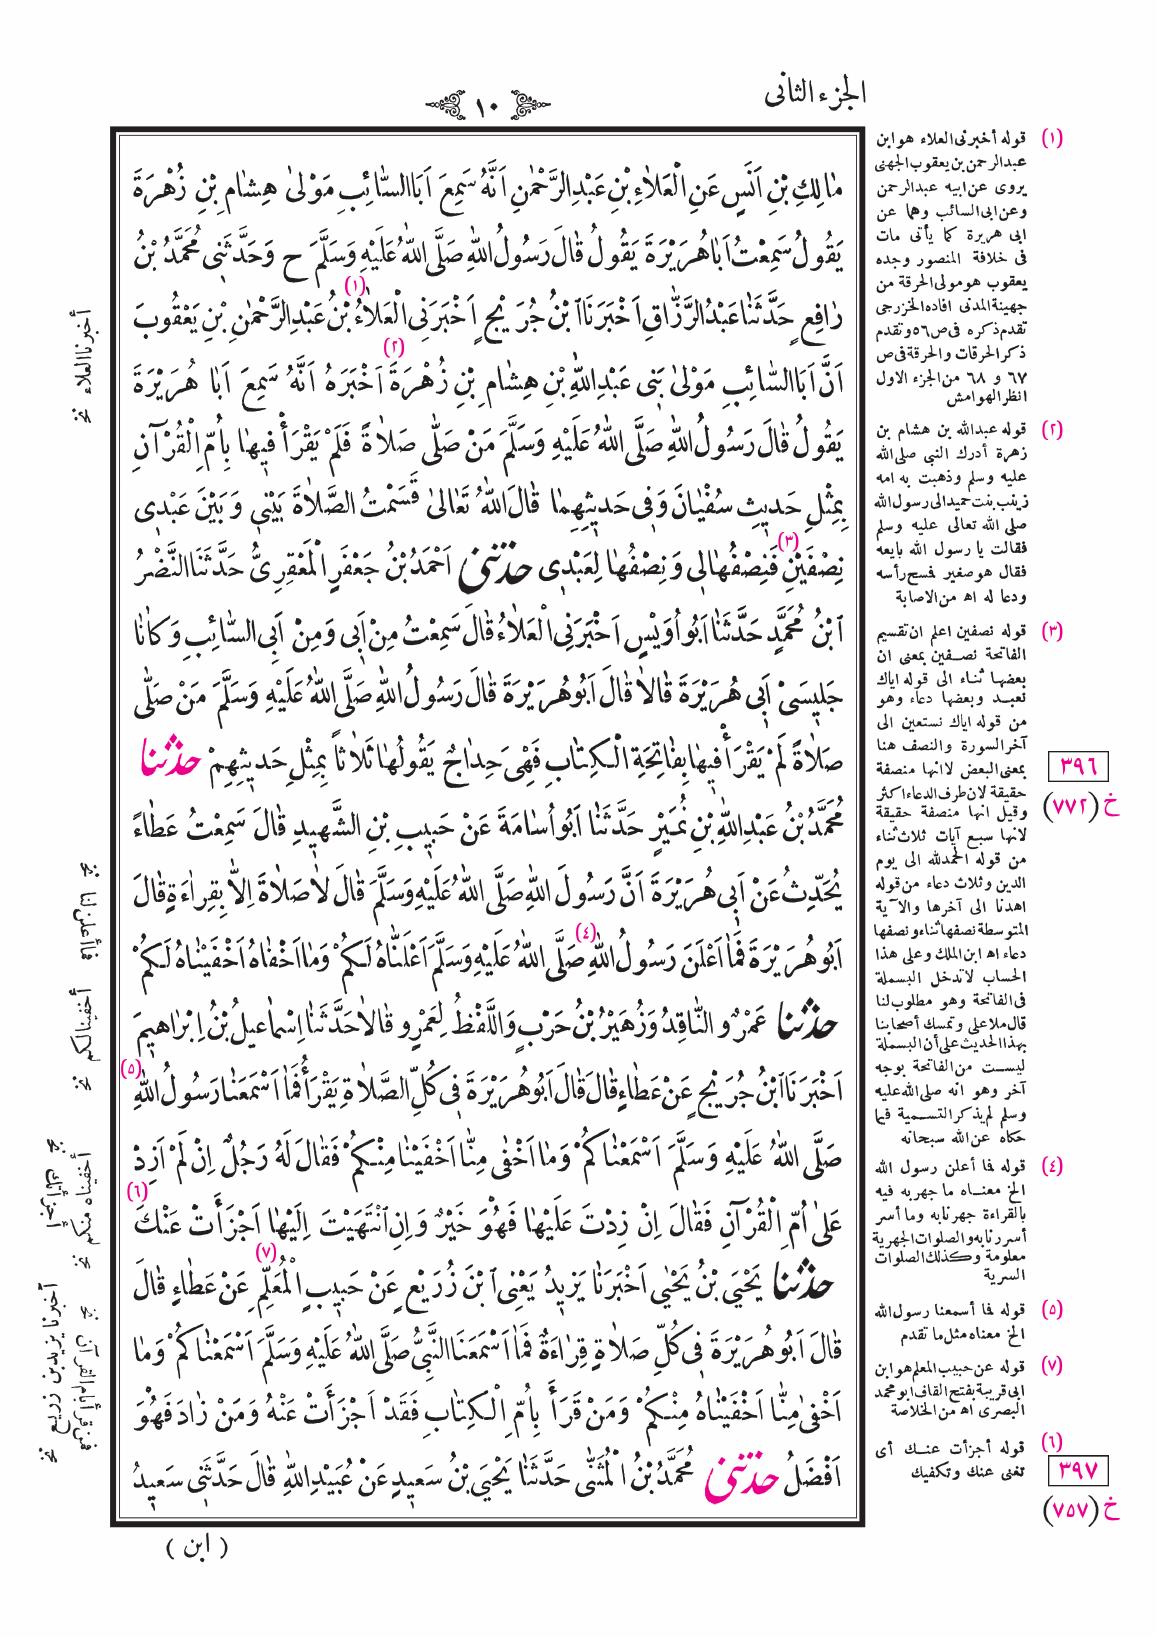 الجزء الثانى
١٠
مٰالِكِ بْنِ اَنَسٍ عَنِ الْعَلاٰءِ بْنِ عَبْدِ الرَّحْمٰنِ اَنَّهُ سَمِعَ اَبَا السّٰائِبِ مَوْلىٰ هِشٰامِ بْنِ زُهْرَةَ
يَقُولُ سَمِعْتُ اَبٰا هُرَيْرَةَ يَقُولُ قٰالَ رَسُولُ اللهِ صَلَّى اللهُ عَلَيْهِ وَسَلَّمَ ح وَحَدَّثَنِى مُحَمَّدُ بْنُ
رٰافِعٍ حَدَّثَنٰا عَبْدُ الرَّزّٰاقِ اَخْبَرَنَا ابْنُ جُرَيْجٍ اَخْبَرَنِى (١) الْعَلاٰءُ بْنُ عَبْدِ الرَّحْمٰنِ بْنِ يَعْقُوبَ
اَنَّ اَبَا السّٰائِبِ مَوْلىٰ بَنِى عَبْدِ اللهِ بْنِ هِشٰامِ بْنِ زُهْرَةَ (٢) اَخْبَرَهُ اَنَّهُ سَمِعَ اَبٰا هُرَيْرَةَ
يَقُولُ قٰالَ رَسُولُ اللهِ صَلَّى اللهُ عَلَيْهِ وَسَلَّمَ مَنْ صَلّٰى صَلاٰةً فَلَمْ يَقْرَأْ فِيهٰا بِأُمِّ الْقُرْآنِ
بِمِثْلِ حَديثِ سُفْيٰانَ وَفِى حَديثِهِمٰا قٰالَ اللهُ تَعٰالىٰ قَسَمْتُ الصَّلاٰةَ بَيْنِى وَبَيْنَ عَبْدِى
نِصْفَيْنِ (٣) فَنِصْفُهٰا لِى وَنِصْفُهٰا لِعَبْدِى حَدَّثَنِى اَحْمَدُ بْنُ جَعْفَرٍ الْمَعْقِرِىُّ حَدَّثَنَا النَّضْرُ
ابْنُ مُحَمَّدٍ حَدَّثَنٰا اَبُو اُوَيْسٍ اَخْبَرَنِى الْعَلاٰءُ قٰالَ سَمِعْتُ مِنْ اَبِى وَمِنْ اَبِى السّٰائِبِ وَكٰانٰا
جَلِيسَىْ اَبِى هُرَيْرَةَ قٰالاٰ قٰالَ اَبُو هُرَيْرَةَ قٰالَ رَسُولُ اللهِ صَلَّى اللهُ عَلَيْهِ وَسَلَّمَ مَنْ صَلّٰى
صَلاٰةً لَمْ يَقْرَأْ فِيهٰا بِفٰاتِحَةِ الْكِتٰابِ فَهِىَ خِدٰاجٌ يَقُولُهٰا ثَلاٰثاً بِمِثْلِ حَديثِهِمْ حَدَّثَنَا
مُحَمَّدُ بْنُ عَبْدِ اللهِ بْنِ نُمَيْرٍ حَدَّثَنٰا اَبُو اُسٰامَةَ عَنْ حَبِيبِ بْنِ الشَّهِيدِ قٰالَ سَمِعْتُ عَطٰاءً
يُحَدِّثُ عَنْ اَبِى هُرَيْرَةَ اَنَّ رَسُولَ اللهِ صَلَّى اللهُ عَلَيْهِ وَسَلَّمَ قٰالَ لاٰ صَلاٰةَ اِلاّٰ بِقِرٰاءَةٍ قٰالَ
اَبُو هُرَيْرَةَ فَمٰا اَعْلَنَ رَسُولُ اللهِ (٤) صَلَّى اللهُ عَلَيْهِ وَسَلَّمَ اَعْلَنّٰاهُ لَكُمْ وَمٰا اَخْفٰاهُ اَخْفَيْنٰاهُ لَكُمْ
حَدَّثَنَا عَمْرٌو النّٰاقِدُ وَزُهَيْرُ بْنُ حَرْبٍ وَاللَّفْظُ لِعَمْرٍو قٰالاٰ حَدَّثَنٰا اِسْمٰاعِيلُ بْنُ اِبْرٰاهِيمَ
اَخْبَرَنَا ابْنُ جُرَيْجٍ عَنْ عَطٰاءٍ قٰالَ قٰالَ اَبُو هُرَيْرَةَ فِى كُلِّ الصَّلاٰةِ يَقْرَأُ فَمٰا اَسْمَعَنٰا رَسُولُ اللهِ (٥)
صَلَّى اللهُ عَلَيْهِ وَسَلَّمَ اَسْمَعْنٰاكُمْ وَمٰا اَخْفٰى مِنّٰا اَخْفَيْنٰا مِنْكُمْ فَقٰالَ لَهُ رَجُلٌ اِنْ لَمْ اَزِدْ
عَلىٰ اُمِّ الْقُرْآنِ فَقٰالَ اِنْ زِدْتَ عَلَيْهٰا فَهُوَ خَيْرٌ وَاِنِ انْتَهَيْتَ اِلَيْهٰا اَجْزَأَتْ عَنْكَ (٦)
حَدَّثَنَا يَحْيَى بْنُ يَحْيىٰ اَخْبَرَنٰا يَزِيدُ يَعْنِى ابْنَ زُرَيْعٍ عَنْ حَبِيبٍ (٧) الْمُعَلِّمِ عَنْ عَطٰاءٍ قٰالَ
قٰالَ اَبُو هُرَيْرَةَ فِى كُلِّ صَلاٰةٍ قِرٰاءَةٌ فَمٰا اَسْمَعَنَا النَّبِىُّ صَلَّى اللهُ عَلَيْهِ وَسَلَّمَ اَسْمَعْنٰاكُمْ وَمٰا
اَخْفٰى مِنّٰا اَخْفَيْنٰاهُ مِنْكُمْ وَمَنْ قَرَأَ بِأُمِّ الْكِتٰابِ فَقَدْ اَجْزَأَتْ عَنْهُ وَمَنْ زٰادَ فَهُوَ
اَفْضَلُ حَدَّثَنِى مُحَمَّدُ بْنُ الْمُثَنّٰى حَدَّثَنٰا يَحْيَى بْنُ سَعِيدٍ عَنْ عُبَيْدِ اللهِ قٰالَ حَدَّثَنِى سَعِيدُ
( ابن )
(١) قوله أخبرنى العلاء هو ابن
عبد الرحمن بن يعقوب الجهنى
يروى عن ابيه عبد الرحمن
وعن ابى السائب وهما عن
ابى هريرة كما يأتى مات
فى خلافة المنصور وجده
يعقوب هو مولى الحرقة من
جهينة المدنى افاده الخزرجى
تقدم ذكره فى ص ٥٦ وتقدم
ذكر الحرقات والحرقة فى ص
٦٧ و ٦٨ من الجزء الاول
انظر الهوامش
(٢) قوله عبد الله بن هشام بن
زهرة أدرك النبى صلى الله
عليه وسلم وذهبت به امه
زينب بنت حميد الى رسول الله
صلى الله تعالى عليه وسلم
فقالت يا رسول الله بايعه
فقال هو صغير فمسح رأسه
ودعا له اه من الاصابة
(٣) قوله نصفين اعلم ان تقسيم
الفاتحة نصفين بمعنى ان
بعضها ثناء الى قوله اياك
نعبد وبعضها دعاء وهو
من قوله اياك نستعين الى
آخر السورة والنصف هنا
بمعنى البعض لا انها منصفة
حقيقة لان طرف الدعاء اكثر
وقيل انها منصفة حقيقة
لانها سبع آيات ثلاث ثناء
من قوله الحمد لله الى يوم
الدين وثلاث دعاء من قوله
اهدنا الى آخرها والآية
المتوسطة نصفها ثناء ونصفها
دعاء اه ابن الملك وعلى هذا
الحساب لا تدخل البسملة
فى الفاتحة وهو مطلوب لنا
قال ملا على وتمسك أصحابنا
بهذا الحديث على أن البسملة
ليست من الفاتحة بوجه
آخر وهو انه صلى الله عليه
وسلم لم يذكر التسمية فيما
حكاه عن الله سبحانه
(٤) قوله فما أعلن رسول الله
الخ معناه ما جهر به فيه
بالقراءة جهرنا به وما أسر
أسررنا به والصلوات الجهرية
معلومة وكذلك الصلوات
السرية
(٥) قوله فما أسمعنا رسول الله
الخ معناه مثل ما تقدم
(٧) قوله عن حبيب المعلم هو ابن
ابى قريبة بفتح القاف ابو محمد
البصرى اه من الخلاصة
(٦) قوله أجزأت عنك أى
تغنى عنك وتكفيك
٣٩٦
خ (٧٧٢)
٣٩٧
خ (٧٥٧)
أخبرنا العلاء نخ
فما أعلن لنا نخ
أخفينا لكم نخ
أخفيناه منكم نخ
أجزأتك نخ
فمن قرأ بأم القرآن نخ
أخبرنا يزيد بن زريع نخ